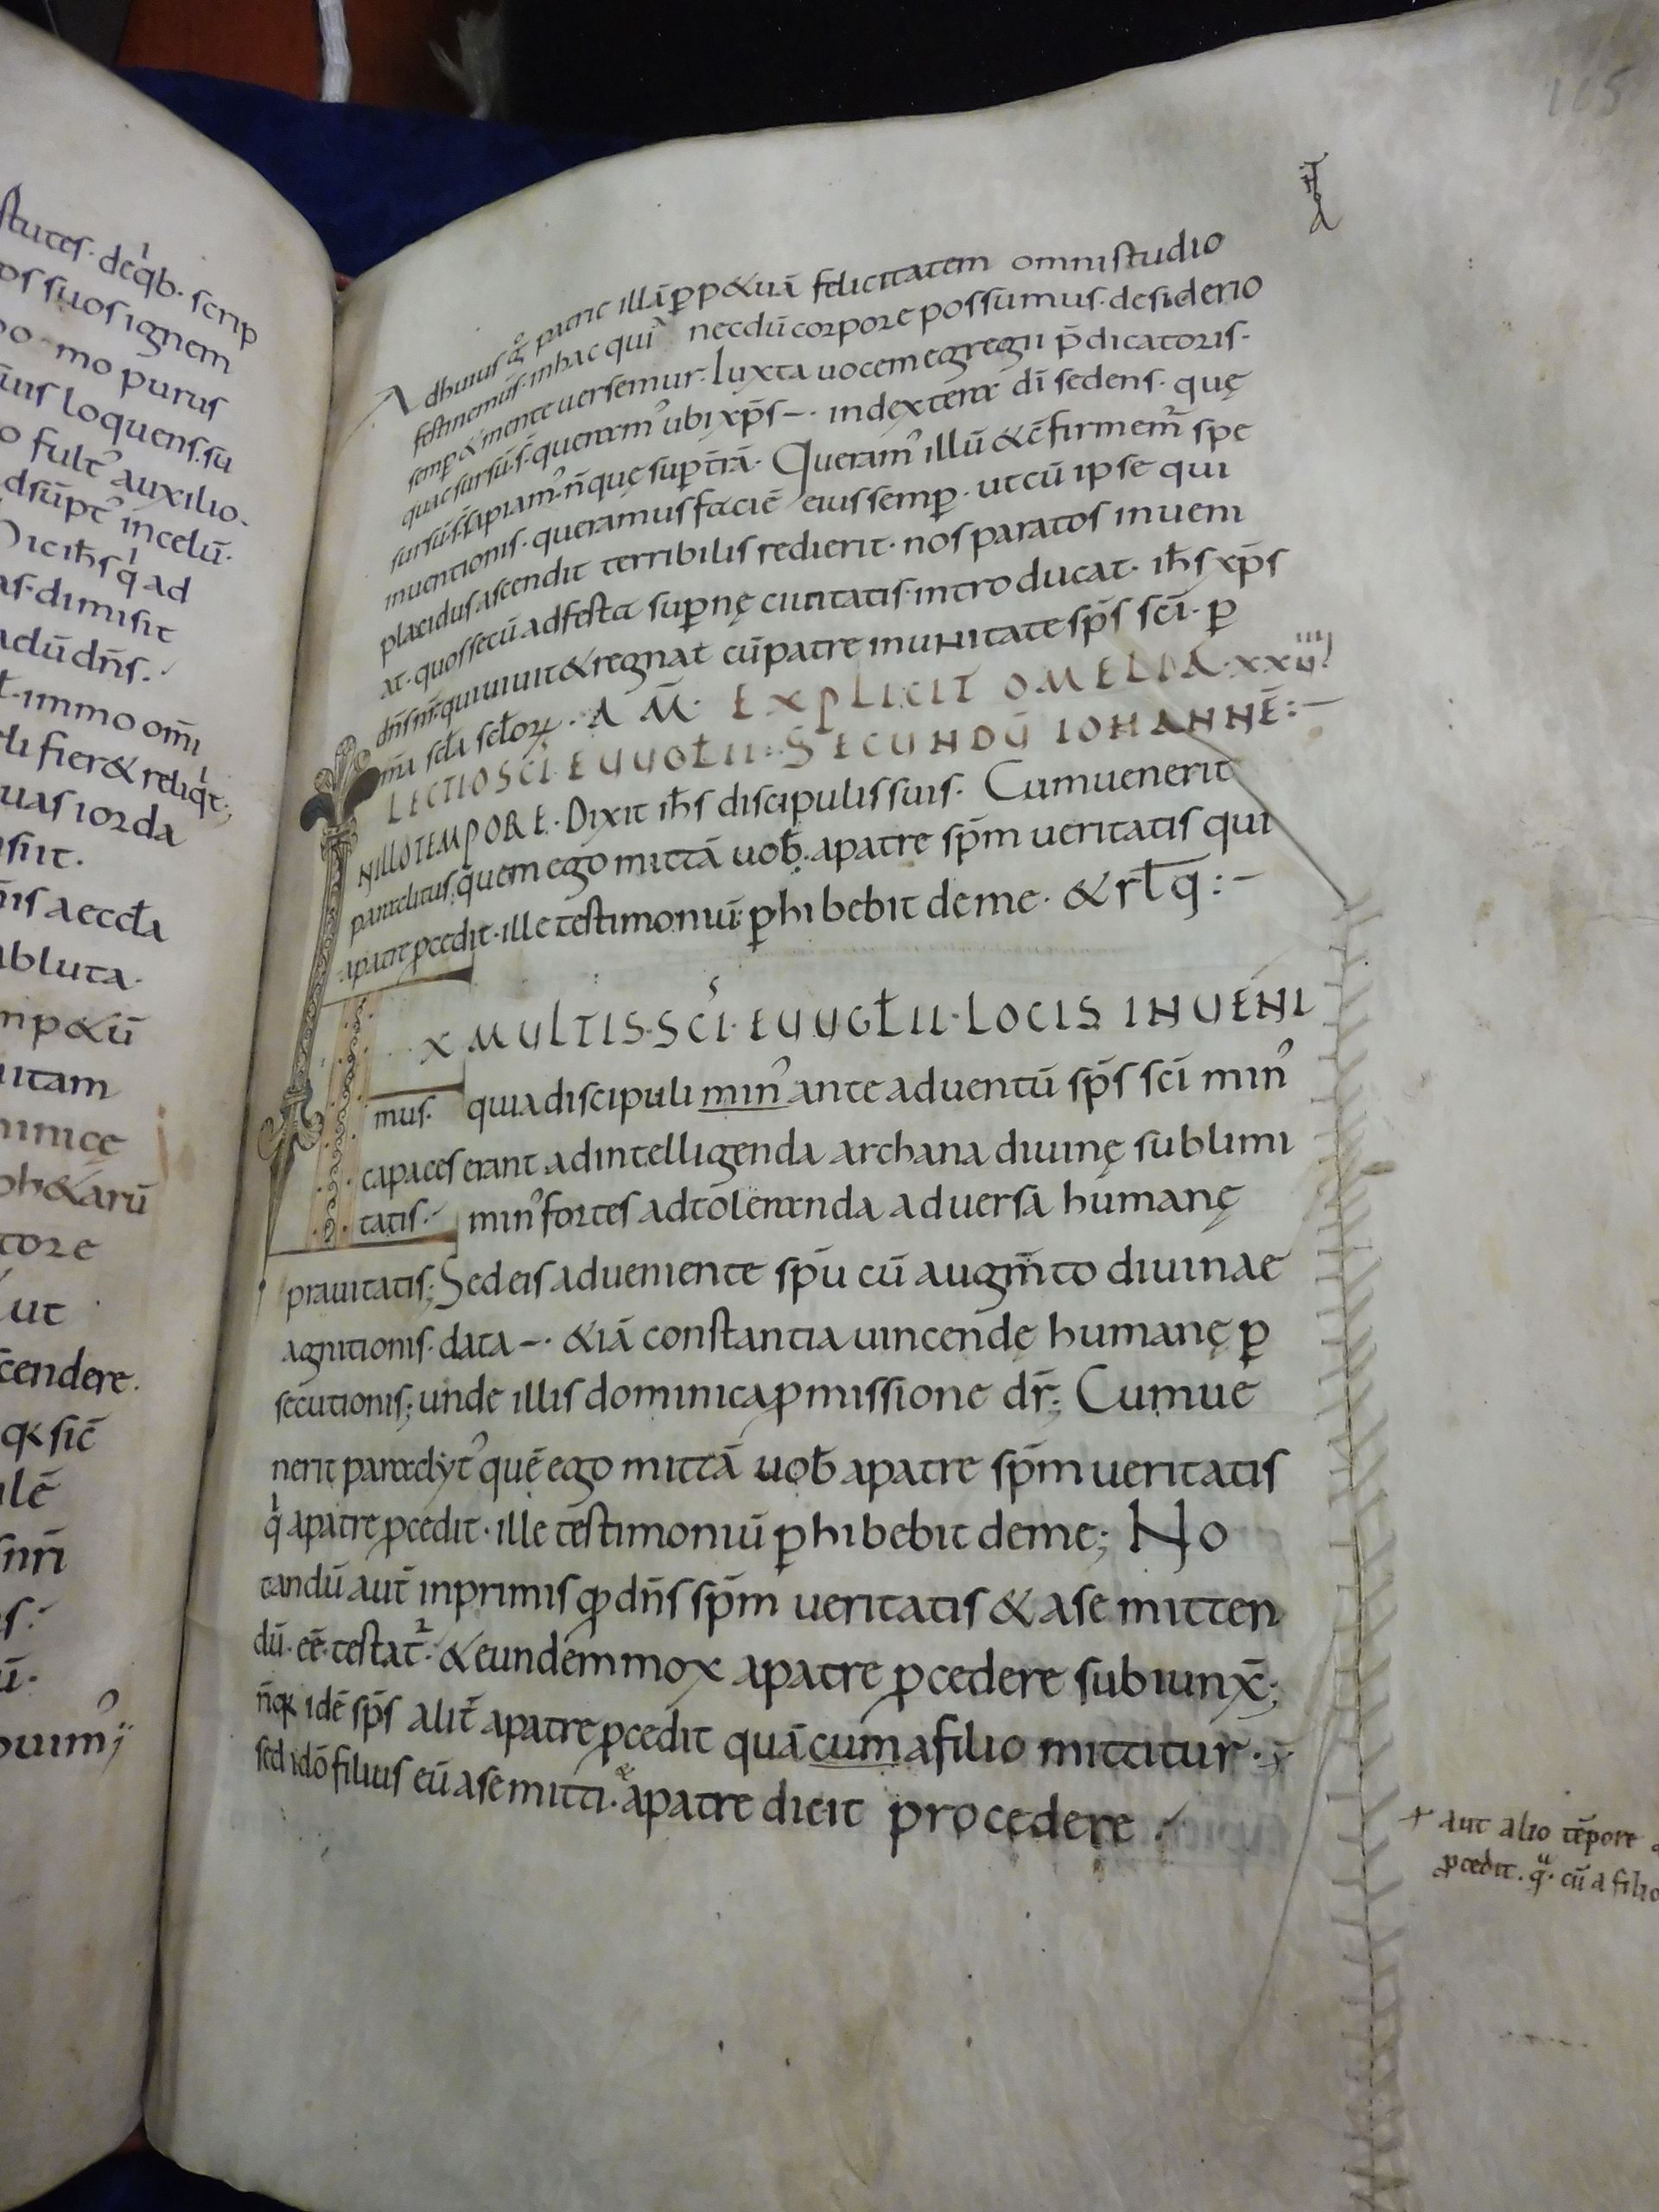 stutes· deqb· scrip
ps suos ignem
mo purus
uis loquens· sū
o fult᾽ auxilio·
dsūpt᾽ incelū·
Dic ih̄s q ad
as· dimisit
adū dn̄s·
immo om̄i
fier& reliq̄t;
uas iorda
siit·
n̄is aeccl̄a
abluta·
mp&ū
uitam
ninicę
ph&arū
tore
ut
cendere·
sic̄
ulē
snr̄i
ouim᾽;
165
Adhuius ḡ patrie illā ꝑp&uā felicitatem omnistudio
festinemus· inhac qui necdū corpore possumus· desiderio
semꝑ & mente uersemur· Iuxta uocem egregii p̄dicatoris·
quae sursū· s̄· queram᾽ ubi xp̄s –· indextera dī sedens· quę
sursū· s̄· sapiam᾽· n̄ quę suꝑ t̄rā· Queram᾽ illū & c̄firmem᾽ spe
inuentionis· queramus faciē eius semꝑ· ut cū ipse qui
placidus ascendit terribilis redierit· nos paratos inueni
at· quos secū adfesta suꝑnę ciuitatis· introducat· ih̄s xp̄s
dn̄s nr̄· qui uiuit & regnat cū patre inunitate sp̄s sc̄i· ꝑ
om̄ia scl̄a scl̄oꝝ· AM̄· EXPLICIT OMELIA· XXIIII
LECTIO SC̄I EUUGL̄II· SECUNDŪ IOHANNĒ:–
INILLO TEMPORE· Dixit ih̄s discipulis suis· Cum uenerit
paraclitus, quem ego mittā uob̄· apatre sp̄m ueritatis qui
apatre ꝓcedit· ille testimoniū ꝑhibebit deme· & rl̄q:–
EX MULTIS· SC̄I· EUUGL̄II· LOCIS INUENI
mus· quia discipuli min᾽ ante aduentū sp̄s sc̄i min᾽
capaces erant adintelligenda archana diuinę sublimi
tatis· min᾽ fortes adtoleranda aduersa humanę
prauitatis; Sed eis adueniente sp̄u cū augm̄to diuinae
agnitionis· data –· & iā constantia uincendę humanę ꝑ
secutionis; unde illis dominica ꝓmissione dr̄; Cum ue
nerit paraclyt᾽ quē ego mittā uob̄ apatre sp̄m ueritatis
q apatre ꝓcedit· ille testimoniū ꝑhibebit deme; No
tandū aut̄ inprimis qđ dn̄s sp̄m ueritatis & ase mitten
dū· eē· testat᾽· & eundem mox apatre ꝓcedere subiunx̄;
n̄ q idē sp̄s alit̄ apatre ꝓcedit quā cum afilio mittitur·
sed idō filius eū ase mitti· & apatre dicit procedere·
+ aut alio tēpore
ꝓcedit· q̄· cū a filio